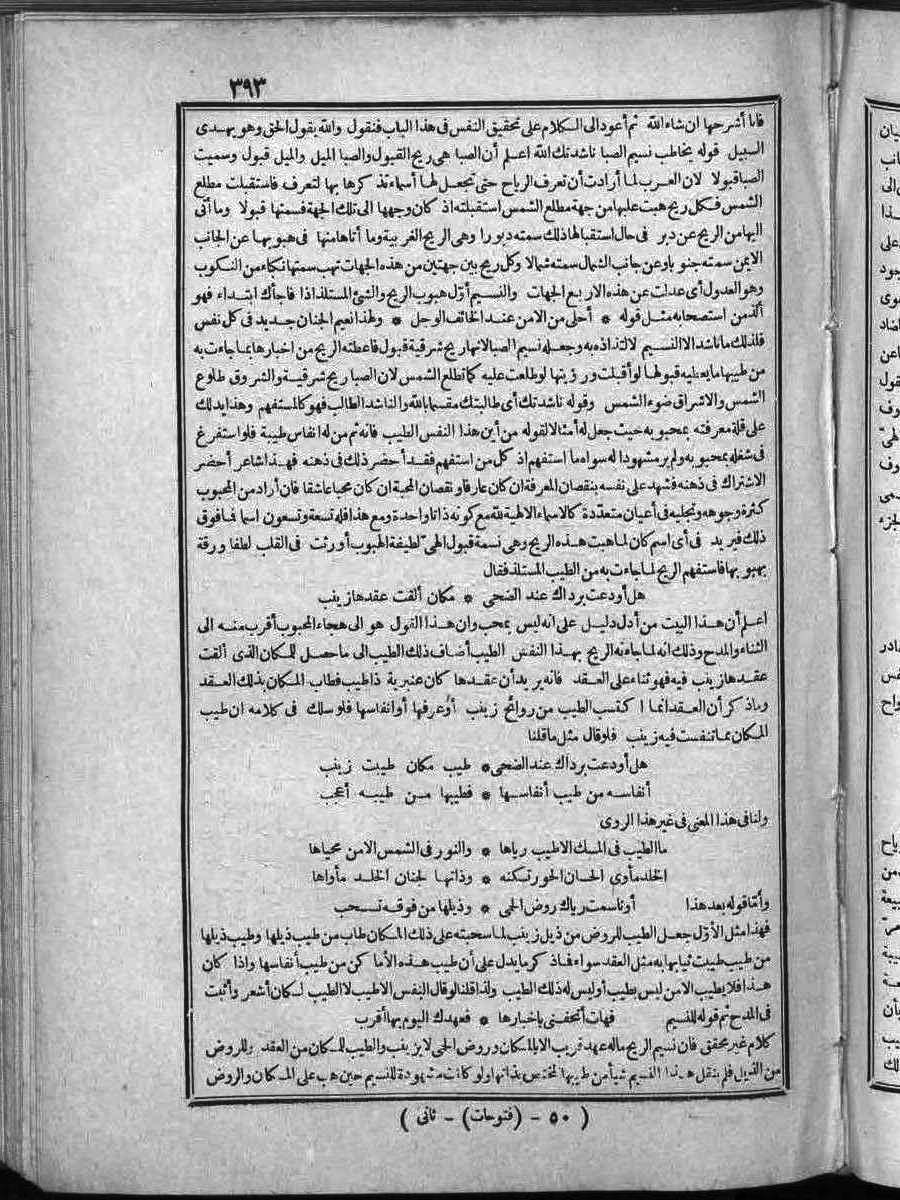 ٣٩٣
فانا أشرحها ان شاء الله ثم أعود الى الكلام على تحقيق النفس فى هذا الباب فنقول والله يقول الحق وهو يهدى
السبيل قوله يخاطب نسيم الصبا ناشدتك الله اعلم أن الصبا هى ريح القبول والصبا الميل والميل قبول وسميت
الصبا قبولا لان العرب لما أرادت أن تعرف الرياح حتى تجعل لها أسماء تذكرها بها لتعرف فاستقبلت مطلع
الشمس فكل ريح هبت عليها من جهة مطلع الشمس استقبلته اذ كان وجهها الى تلك الجهة فسمتها قبولا وما أتى
اليها من الريح عن دبر فى حال استقبالها ذلك سمته دبورا وهى الريح الغربية وما أتاها منها فى هبوبها عن الجانب
الايمن سمته جنوبا وعن جانب الشمال سمته شمالا وكل ريح بين جهتين من هذه الجهات تهب سمتها نكباء من النكوب
وهو العدول أى عدلت عن هذه الاربع الجهات والنسيم أوّل هبوب الريح والشئ المستلذ اذا فاجأك ابتداء فهو
ألذ من استصحابه مثل قوله * أحلى من الامن عند الخائف الوجل * ولهذا نعيم الجنان جديد فى كل نفس
فلذلك ما ناشد الا النسيم لالتذاذه به وجعله نسيم الصبا لانها ريح شرقية قبول فاعطته الريح من اخبارها بما جاءت به
من طيبها ما يعطيه قبولها لو أقبلت ورؤيتها لو طلعت عليه كما تطلع الشمس لان الصبا ريح شرقية والشروق طلوع
الشمس والاشراق ضوء الشمس وقوله ناشدتك أى طالبتك مقسما بالله والناشد الطالب فهو كالمستفهم وهذا يدلك
على قلة معرفته بمحبوبه حيث جعل له أمثالا لقوله من أين هذا النفس الطيب فانه ثم من له انفاس طيبة فلو استفرغ
فى شغله بمحبوبه ولم ير مشهودا له سواه ما استفهم اذ كل من استفهم فقد أحضر ذلك فى ذهنه فهذا شاعر أحضر
الاشتراك فى ذهنه فشهد على نفسه بنقصان المعرفة ان كان عارفا ونقصان المحبة ان كان محبا عاشقا فان أراد من المحبوب
كثرة وجوهه وتجليه فى أعيان متعدّدة كالاسماء الالهية لله مع كونه ذاتا واحدة ومع هذا فله تسعة وتسعون اسما فما فوق
ذلك فيريد فى أى اسم كان لما هبت هذه الريح وهى نسمة قبول الهىّ لطيفة الهبوب أورثت فى القلب لطفا ورقة
بهبوبها فاستفهم الريح لما جاءت به من الطيب المستلذ فقال
هل أودعت برداك عند الضحى * مكان ألقت عقدها زينب
اعلم أن هذا البيت من أدل دليل على انه ليس بمحب وان هذا القول هو الى هجاء المحبوب أقرب منه الى
الثناء والمدح وذلك انه لما جاءته الريح بهذا النفس الطيب أضاف ذلك الطيب الى ما حصل للمكان الذى ألقت
عقدها زينب فيه فهو ثناء على العقد فانه يريد أن عقدها كان عنبرية ذا طيب فطاب المكان بذلك العقد
وما ذكر أن العقد انما اكتسب الطيب من روائح زينب أو عرفها أو انفاسها فلو سلك فى كلامه ان طيب
المكان بما تنفست فيه زينب فلو قال مثل ما قلنا
هل أودعت برداك عند الضحى * طيب مكان طيبت زينب
أنفاسه من طيب أنفاسها * فطيبها من طيبه أعجب
ولنا فى هذا المعنى فى غير هذا الروى
ما الطيب فى المسك الا طيب رياها * والنور فى الشمس الا من محياها
الخلد مأوى الحسان الحور تسكنه * وذاتها لجنان الخلد مأواها
وأمّا قوله بعد هذا أو ناسمت رياك روض الحمى * وذيلها من فوقه تسحب
فهذا مثل الاوّل جعل الطيب للروض من ذيل زينب لما سحبته على ذلك المكان طاب من طيب ذيلها وطيب ذيلها
من طيب طيبت ثيابها به مثل العقد سواء فما ذكر ما يدل على أن طيب هذه الأماكن من طيب أنفاسها واذا كان
هذا فلا يطيب الا من ليس بطيب أو ليس له ذلك الطيب ولذا قلنا لو قال النفس الاطيب لا الطيب لكان أشعر وأثبت
فى المدح ثم قوله للنسيم فهات أتحفنى باخبارها * فعهدك اليوم بها أقرب
كلام غير محقق فان نسيم الريح ماله عهد قريب الا بالمكان وروض الحمى لا بزينب والطيب للمكان من العقد وللروض
من الذيل فلم ينقل هذا النسيم شيأ من طيبها المختص بذاتها ولو كانت مشهودة للنسيم حين هب على المكان والروض
( ٥٠ - (فتوحات) - ثانى )